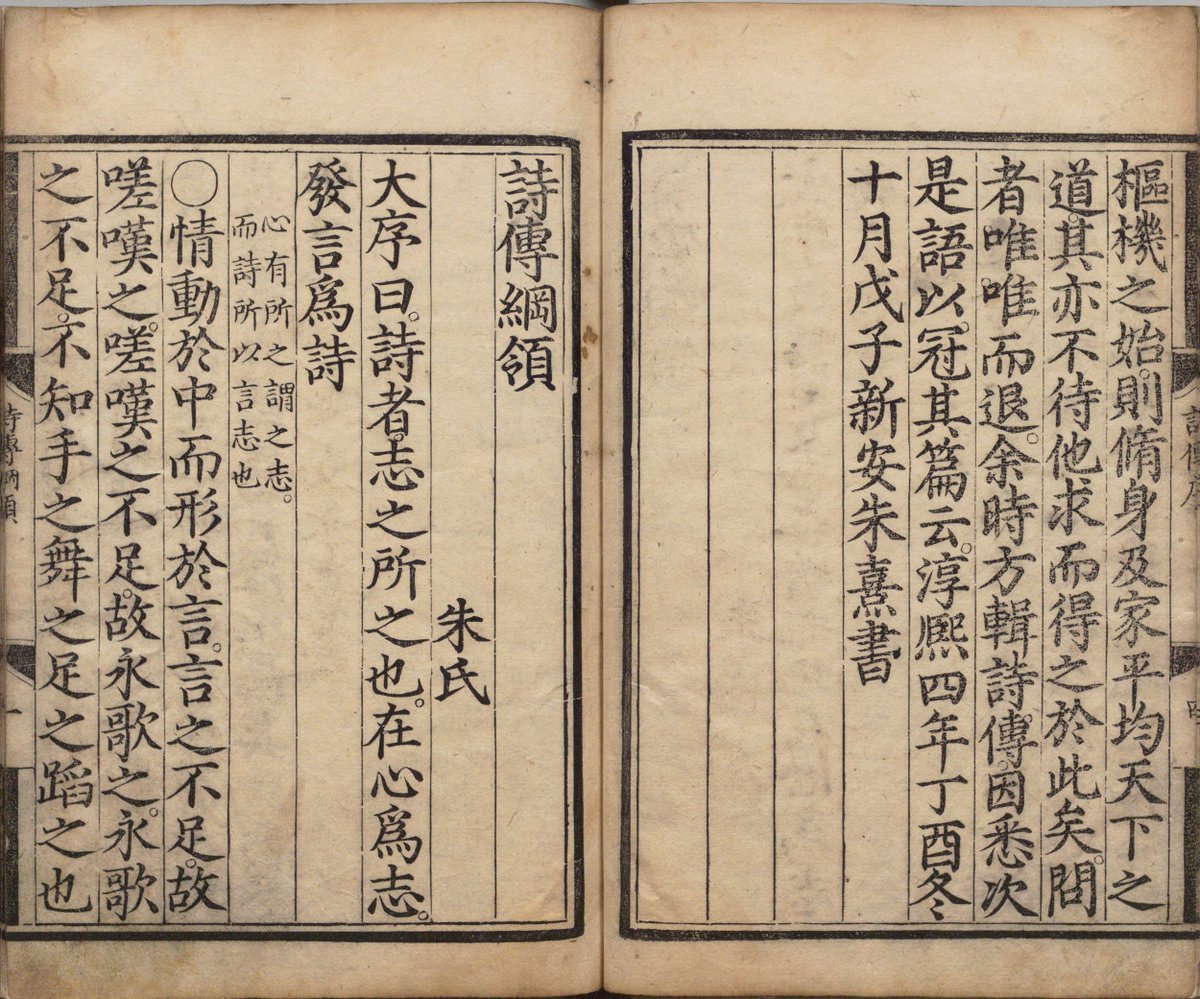 樞機之始。則脩身及家平均天下之
道。其亦不待他求而得之於此矣。問
者唯唯而退。余時方輯詩傳。因悉次
是語以冠其篇云。淳熙四年丁酉冬
十月戊子新安朱熹書
詩傳綱領
朱氏
大序曰。詩者。志之所之也。在心爲志。
發言爲詩
心有所之謂之志。
而詩所以言志也
○情動於中而形於言。言之不足。故
嗟嘆之。嗟嘆之不足。故永歌之。永歌
之不足。不知手之舞之足之蹈之也
詩傳綱領
一